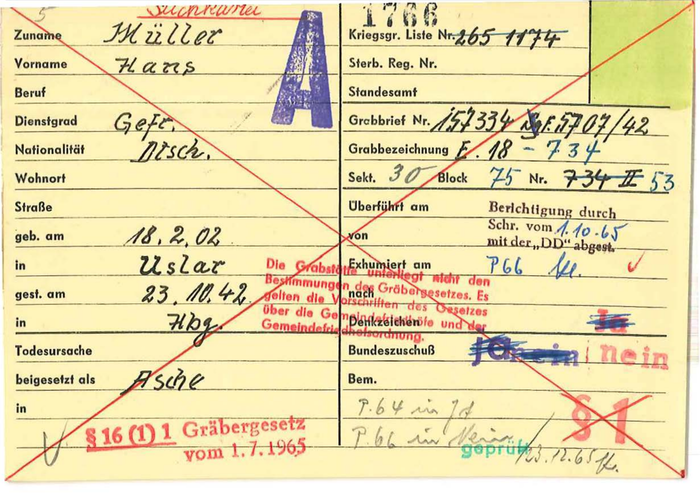 5 Suchkartei
1766
A
Zuname Müller
Vorname Hans
Beruf
Dienstgrad Gefr.
Nationalität Dtsch.
Wohnort
Straße
geb. am 18.2.02
in Uslar
gest. am 23.10.42
in Hbg.
Todesursache
beigesetzt als Asche
in
§ 16 (1) 1 Gräbergesetz
vom 1.7.1965
Die Grabstätte unterliegt nicht den
Bestimmungen des Gräbergesetzes. Es
gelten die Vorschriften des Gesetzes
über die Gemeindefriedhöfe und der
Gemeindefriedhofsordnung.
Kriegsgr. Liste Nr. 265 1174
Sterb. Reg. Nr.
Standesamt
Grabbrief Nr. 157334 F. 5707/42
Grabbezeichnung E. 18 - 734
Sekt. 30 Block 75 Nr. 734 II 53
Überführt am
Berichtigung durch
Schr. vom 1.10.65
mit der „DD" abgest.
von
Exhumiert am P66
nach
Denkzeichen Ja
Bundeszuschuß ja nein nein
Bem.
P.64 in Ja
P.66 in Nein
§ 1
geprüft 23.12.65